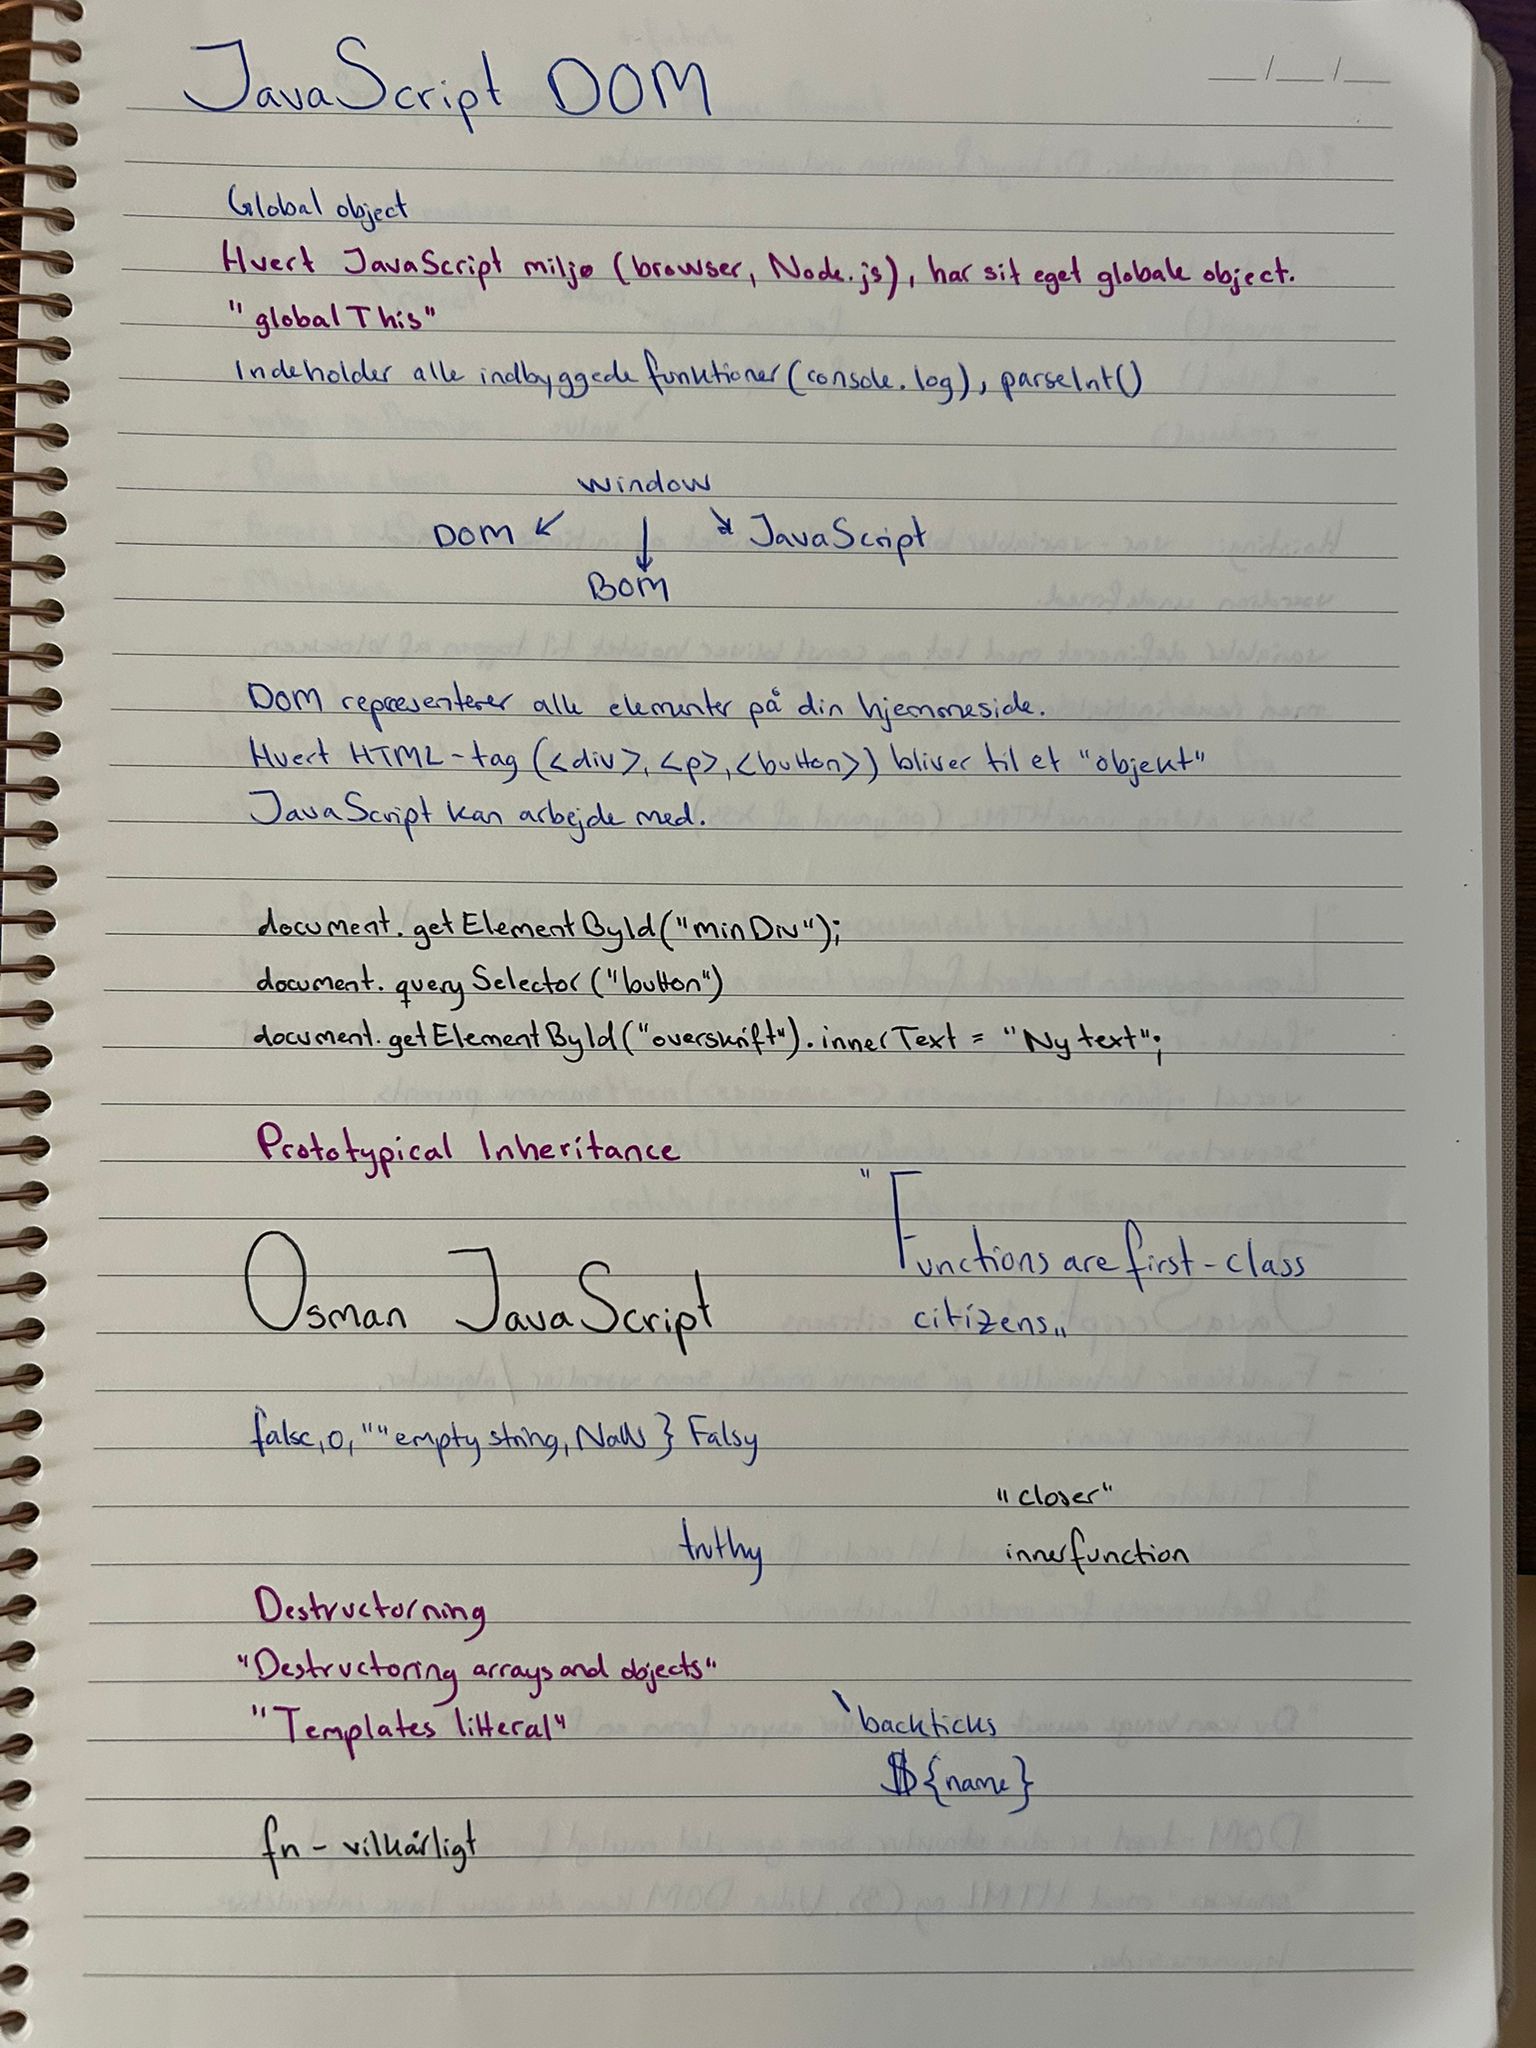 JavaScript DOM
__/__/__
Global object
Hvert JavaScript miljø (browser, Node.js), har sit eget globale object.
"globalThis"
Indeholder alle indbyggede funktioner (console.log), parseInt()
window
DOM ↙ ↓ ↘ JavaScript
BOM
DOM repræsenterer alle elementer på din hjemmeside.
Hvert HTML-tag (<div>, <p>, <button>) bliver til et "objekt"
JavaScript kan arbejde med.
document.getElementById("minDiv");
document.querySelector("button")
document.getElementById("overskrift").innerText = "Ny text";
Prototypical Inheritance
"Functions are first-class
citizens"
Osman JavaScript
false, 0, "" empty string, NaN } Falsy
"closer"
truthy
innerfunction
Destructorning
"Destructoring arrays and objects"
"Templates litteral"
`backticks
${name}
fn - vilkårligt